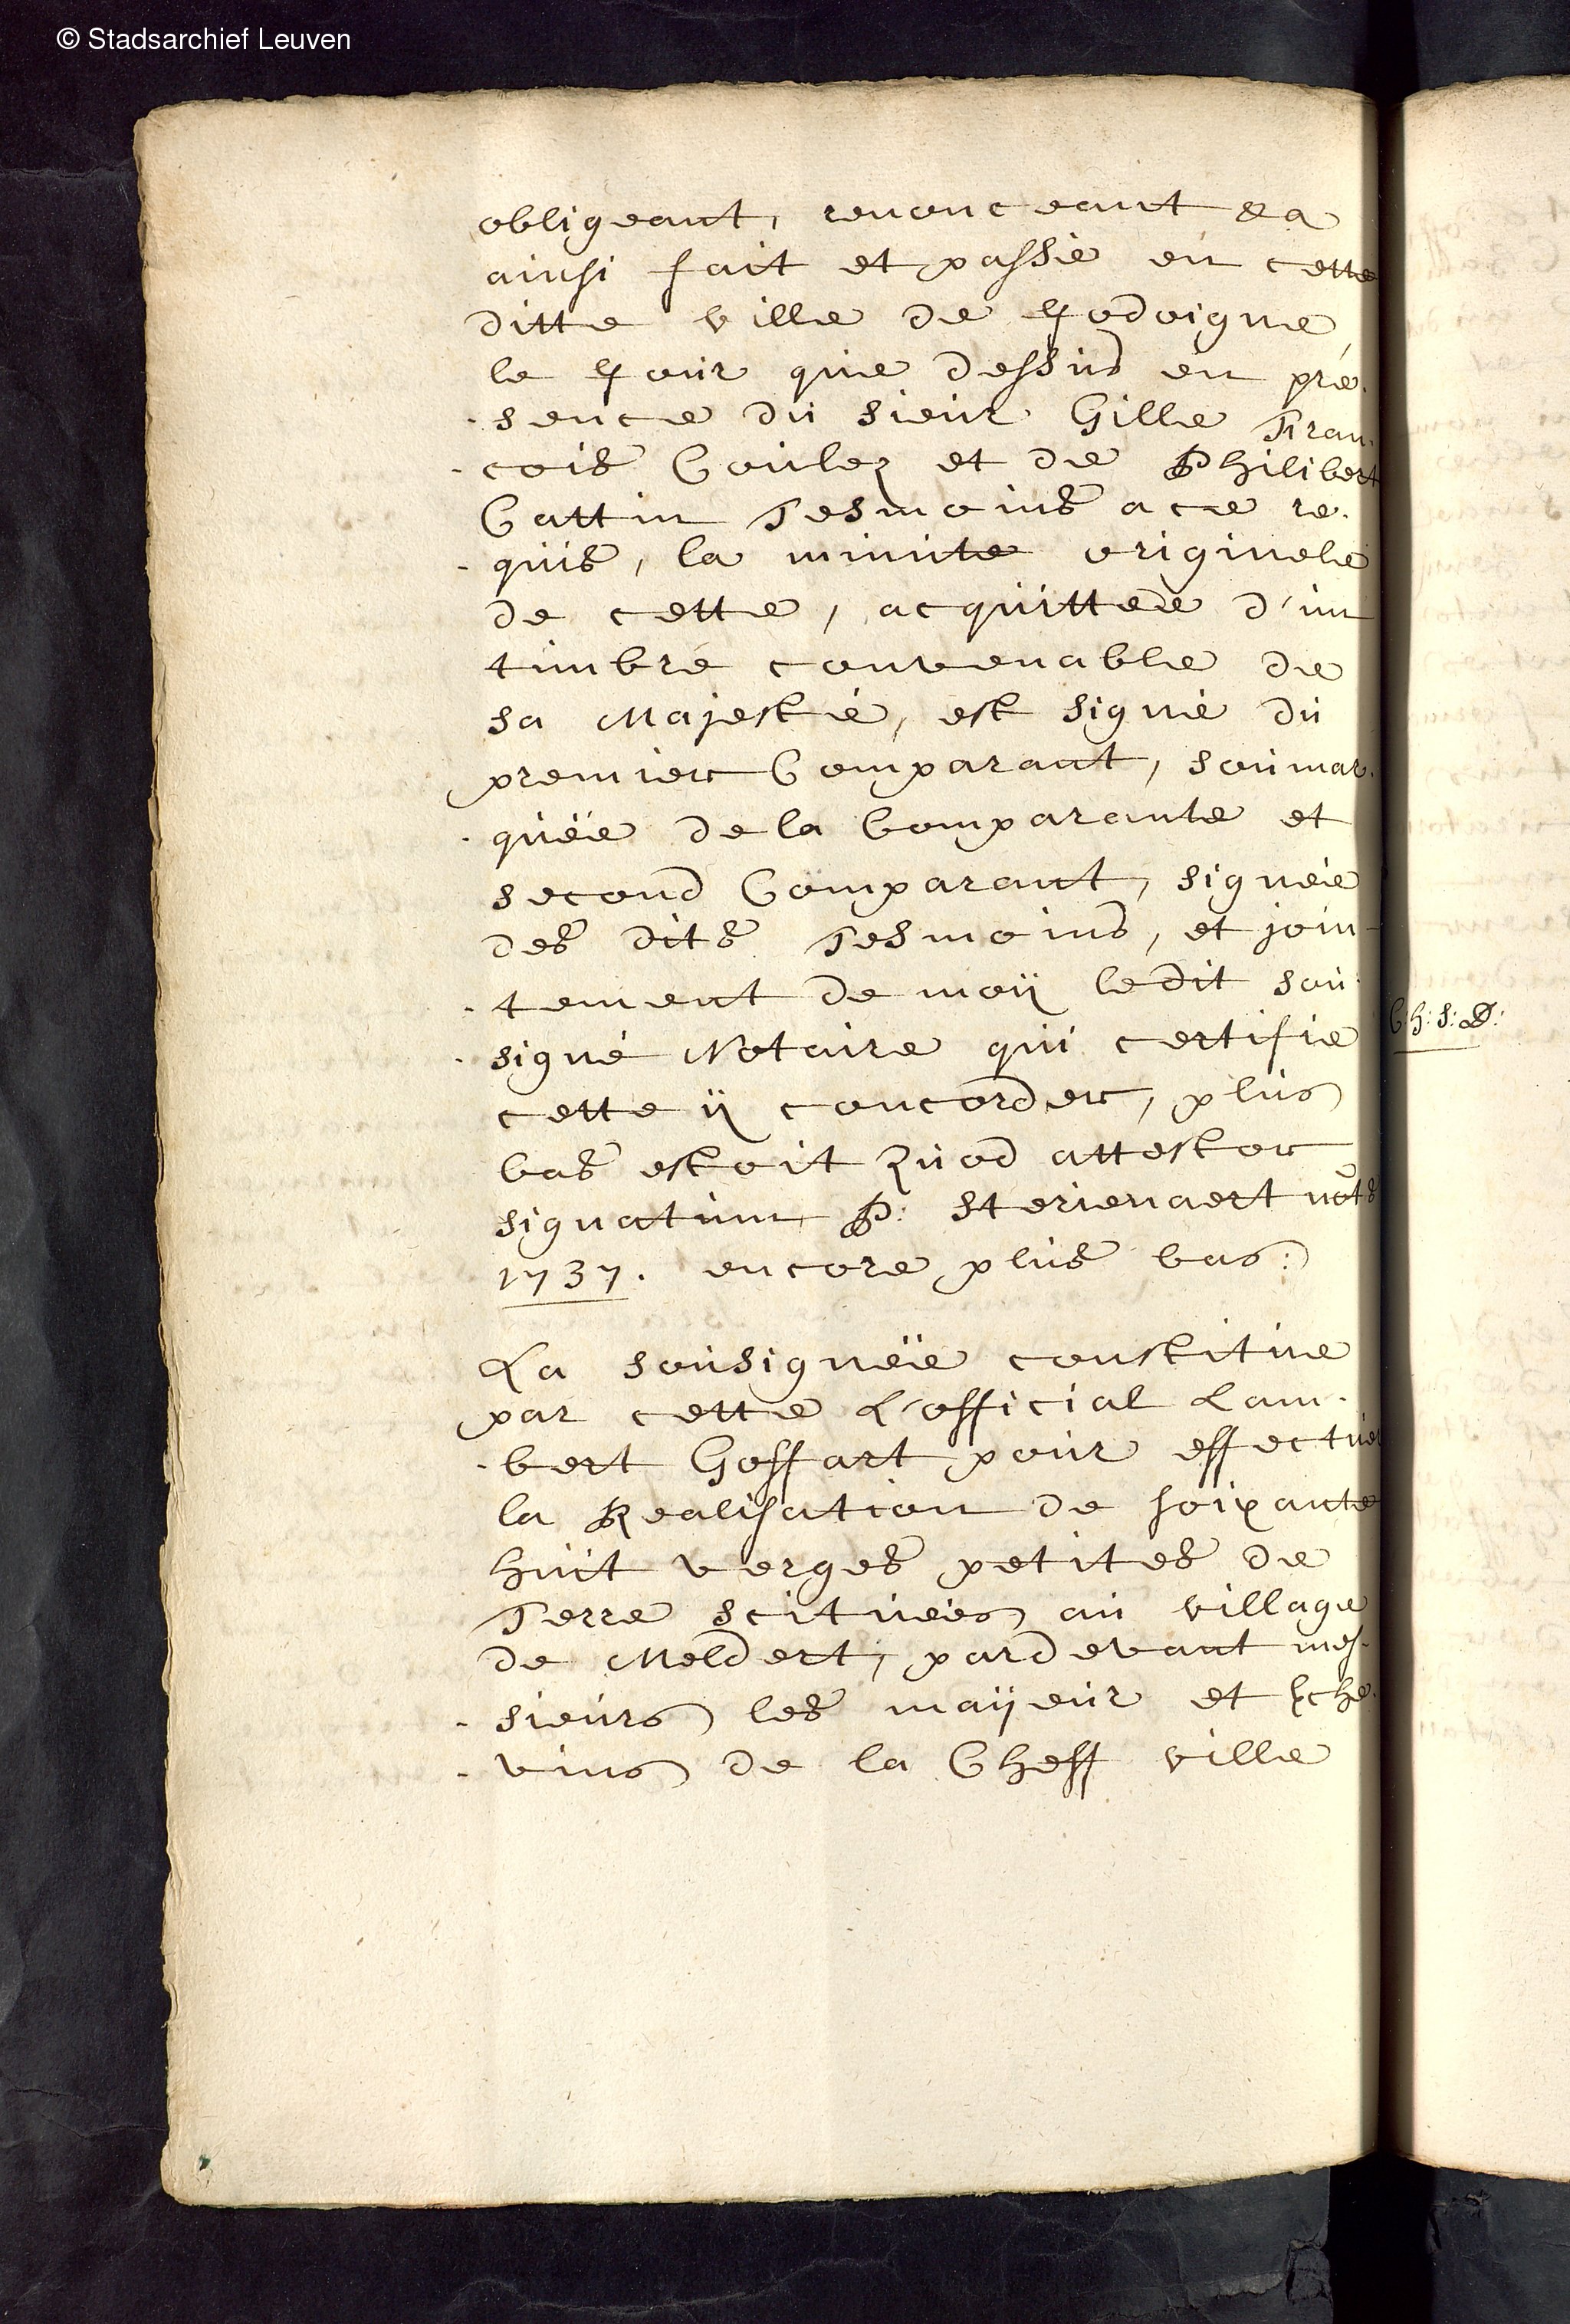 © Stadsarchief Leuven
obligeant, renonceant &a
ainsi fait et passé en cette
ditte ville de Jodoigne
le Jour que dessus en pre-
-sence du sieur Gille Fran-
-cois Coulez et de Philibert
Cattin Tesmoins a ce re-
-quis, la minute originele
de cette, acquittée d'un
timbre convenable de
sa Majesté, est signé du
premier Comparant, soumar-
-quée de la Comparante et
second Comparant, signée
des dits Tesmoins, et join-
-tement de moÿ ledit sou-
-signé Notaire qui certifie
cette ÿ concorder, plus
bas estoit quod attestor
signatum P: Sterienaert nots
1737. encore plus bas:
La sousignée constitue
par cette L'official Lam-
-bert Goffart pour effectuer
la Realisation de soixante
huit verges petites de
Terre scituées au village
de Meldert, pardevant mes-
-sieurs les maÿeur et Eche-
-vins de la Cheff ville